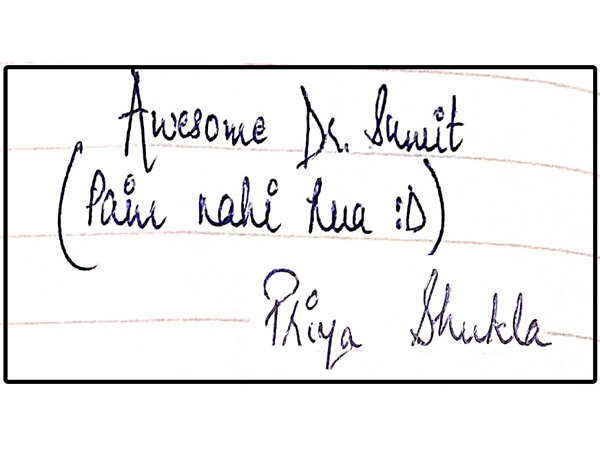 Awesome Dr. Sumit
(Pain nahi hua :D)
Priya Shukla